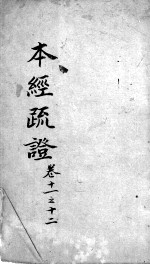 本經疏證
卷十一之十二